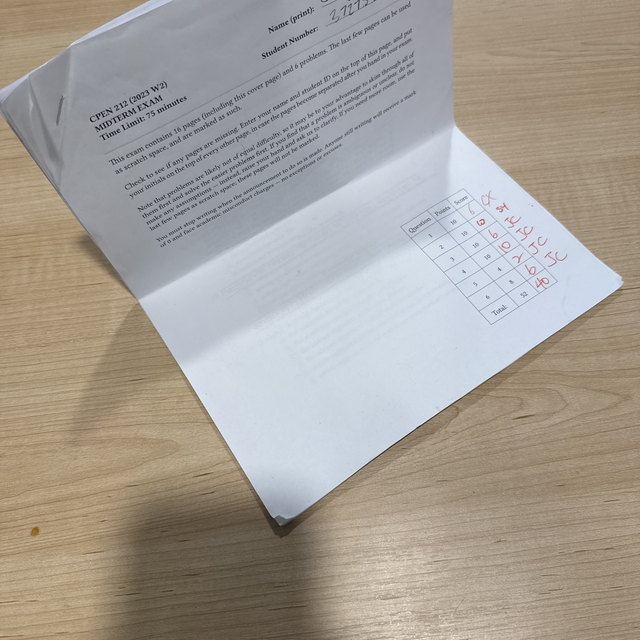 Name (print):
Student Number:
CPEN 212 (2023 W2)
MIDTERM EXAM
Time Limit: 75 minutes
This exam contains 16 pages (including this cover page) and 6 problems. The last few pages can be used
as scratch space, and are marked as such.
Check to see if any pages are missing. Enter your name and student ID on the top of this page, and put
your initials on the top of every other page, in case the pages become separated after you hand in your exam.
Note that problems are likely not of equal difficulty, so it may be to your advantage to skim through all of
them first and solve the easier problems first. If you find a problem is ambiguous or unclear, do not
make any assumptions — instead, raise your hand and ask us to clarify. If you need more room, use the
last few pages as scratch space; these pages will not be marked.
You must stop writing when the announcement to do so is made. Anyone still writing will receive a mark
of 0 and face academic misconduct charges — no exceptions or excuses.
Question Points Score
1 10 6
2 10 10
3 10 6 JC
4 10 10 JC
5 4 2 JC
6 8 6 JC
Total: 52 40